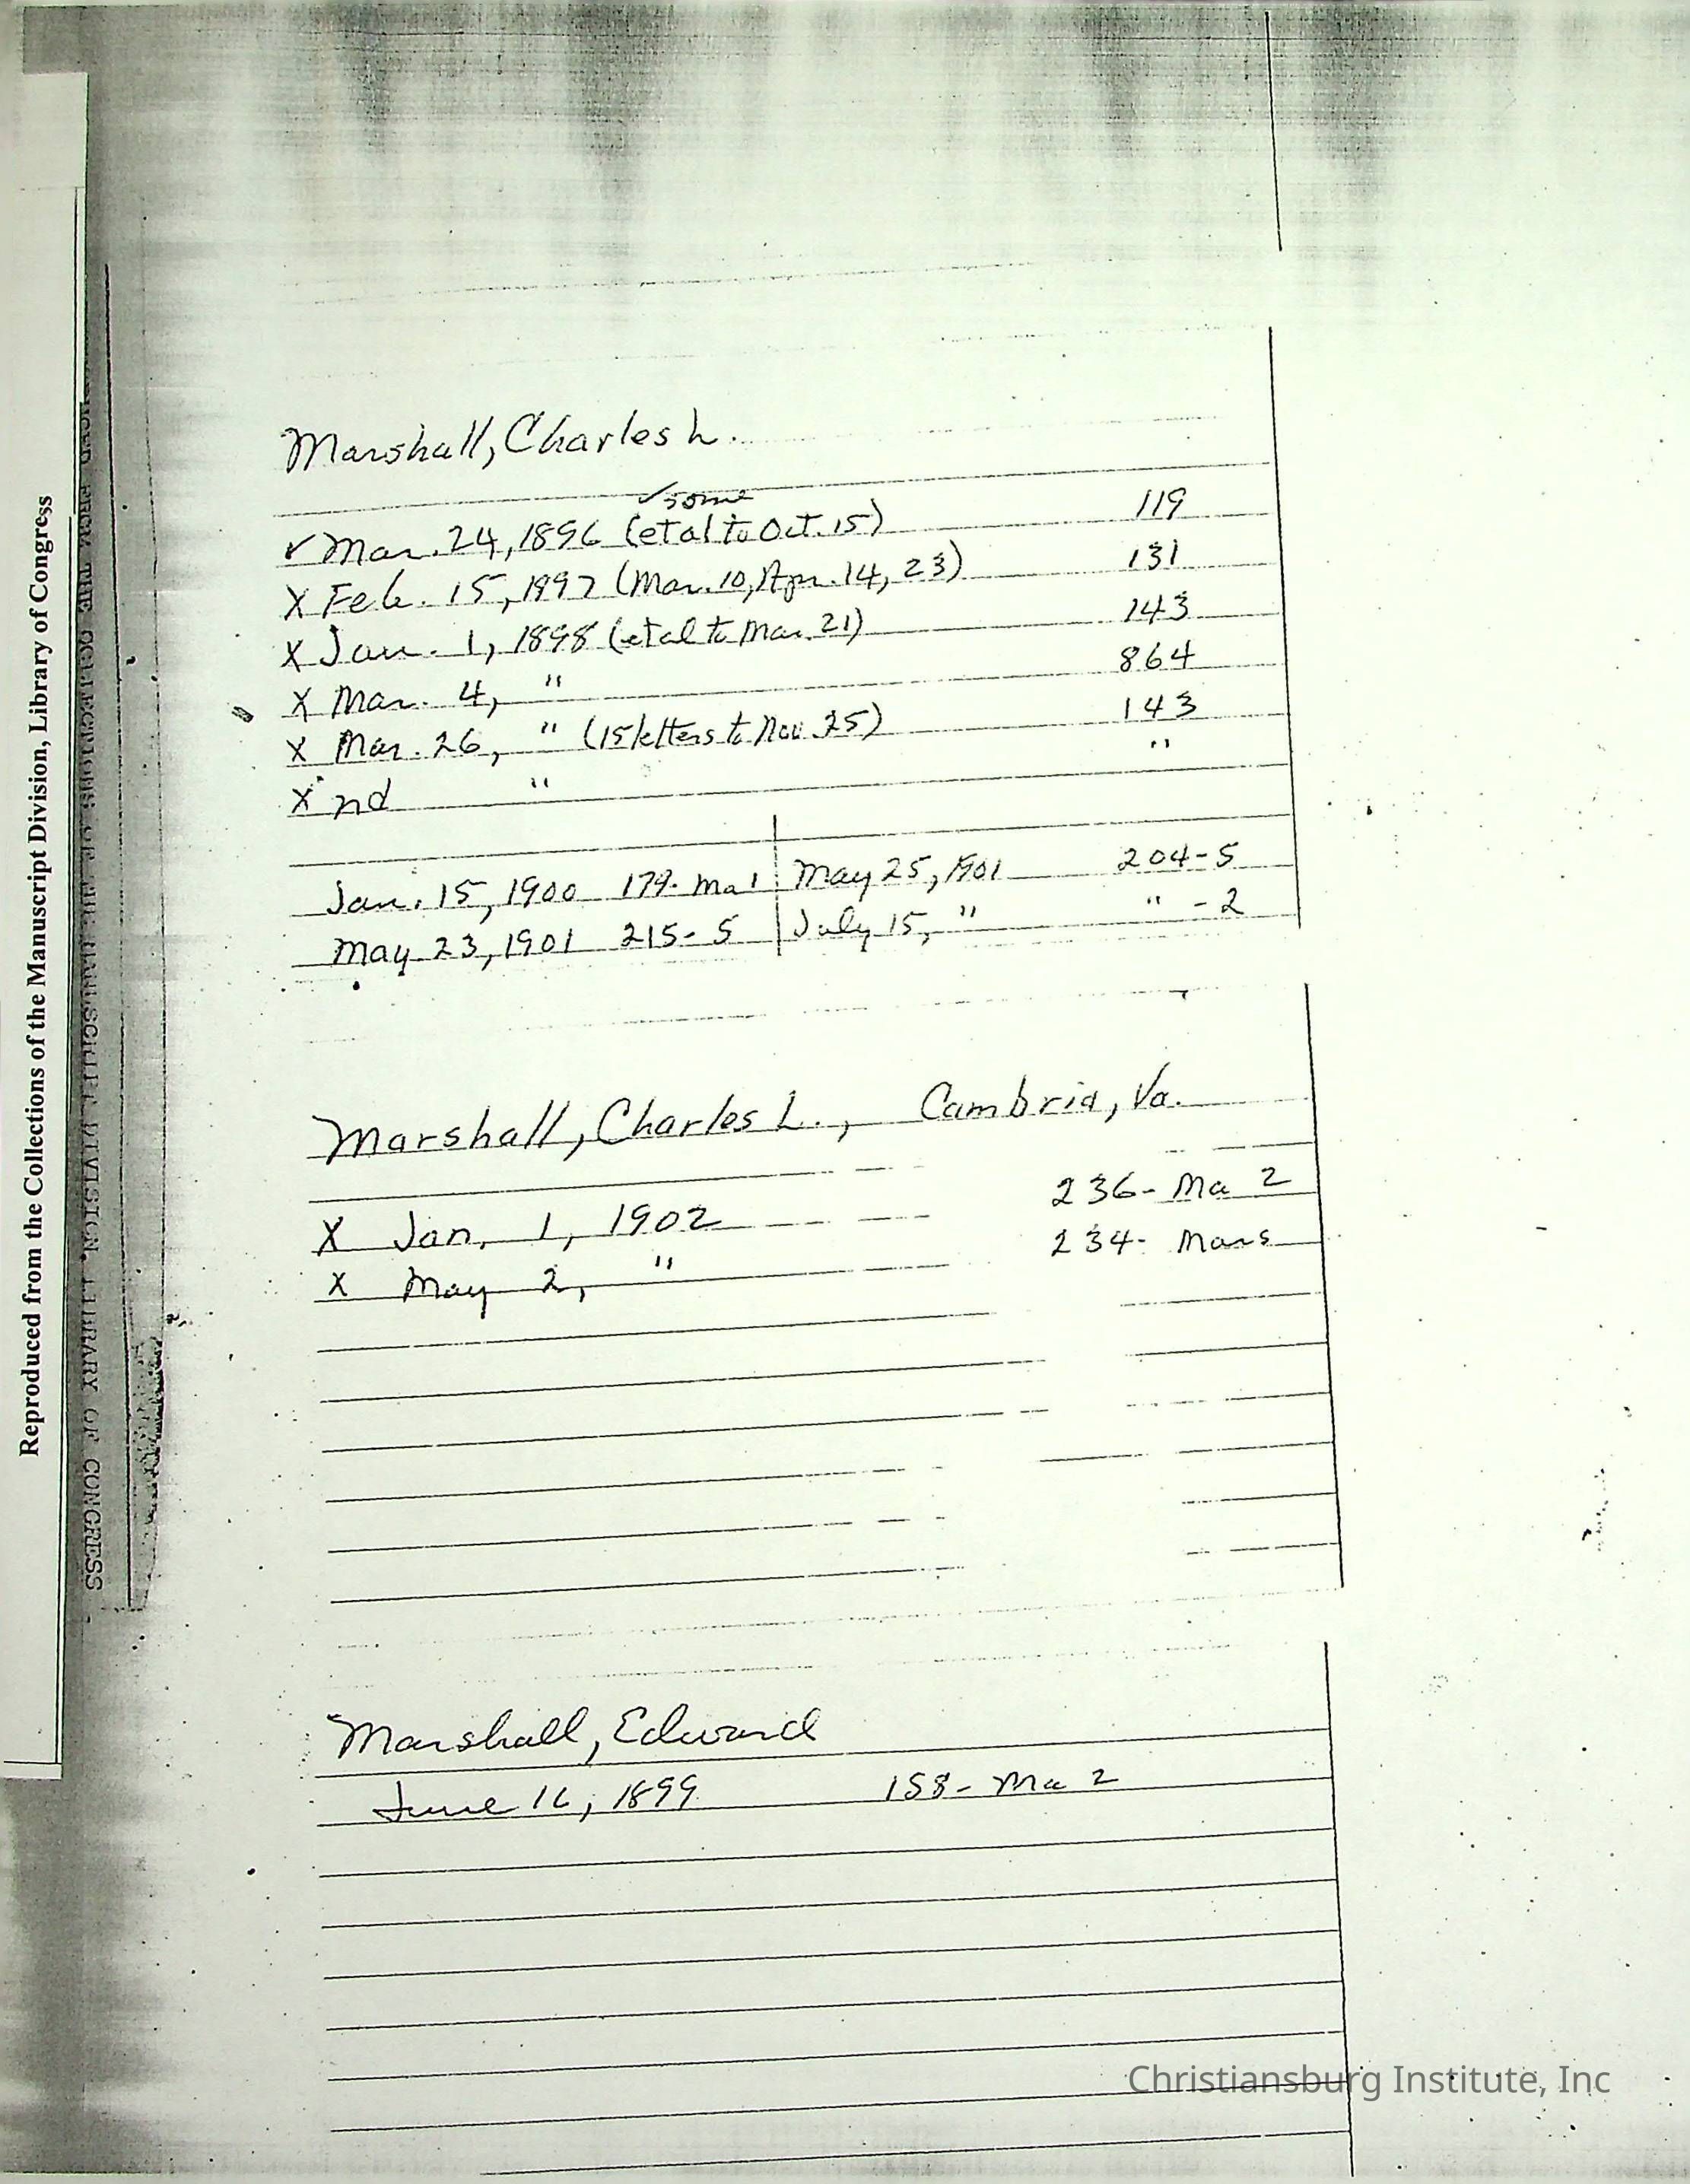 Reproduced from the Collections of the Manuscript Division, Library of Congress
THE COLLECTIONS OF THE MANUSCRIPT DIVISION, LIBRARY OF CONGRESS
Marshall, Charles L.
✓ some
✓ Mar. 24, 1896 (et al to Oct. 15) 119
X Feb. 15, 1897 (Mar. 10, Apr. 14, 23) 131
X Jan. 1, 1898 (et al to Mar. 21) 143
X Mar. 4, " 864
X Mar. 26, " (15 letters to Nov. 25) 143
X nd " "
Jan. 15, 1900 179- Ma 1 May 25, 1901 204-5
May 23, 1901 215-5 July 15, " " -2
Marshall, Charles L., Cambria, Va.
X Jan. 1, 1902 236- Ma 2
X May 2, " 234- Mars
Marshall, Edward
June 16, 1899 158- Ma 2
Christiansburg Institute, Inc